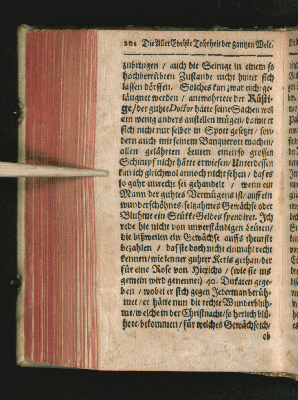 202 Die Aller Edelste Tohrheit der gantzen Welt.
zubringen / auch die Seinige in einem so
hochbetrübten Zustande nicht hinter sich
lassen dörffen. Solches kan zwar nicht ge-
läugnet werden / antwortete der Rüsti-
ge / der guhte Doctor hätte seine Sachen wol
ein wenig anders anstellen mügen / damit er
sich nicht nur selber in Spott gesetzet / son-
dern auch mit seinem Banquieren machen /
allen gelährten Leuten einen so grossen
Schimpf nicht hätte erwiesen / Unterdessen
kan ich gleichwol annoch nicht sehen / daß es
so gahr unrecht sei gehandelt / wenn ein
Mann der guhtes Vermügens ist / auff ein
wunderschönes / seltzahmes Gewächse oder
Bluhme ein Stükke Geldes spendiret. Ich
rede hie nicht von unverständigen Leuten /
die bißweilen ein Gewächse auffs theurste
bezahlen / daß sie doch nicht einmahl recht
kennen / wie jenner guhter Kerls gethan / der
für eine Rose von Hiericho / (wie sie ins
gemein wird genennet) 40. Dukaten gege-
ben / wobei er sich gegen Jederman berüh-
met / er hätte nun die rechte Wunderbluh-
me / welche in der Christnacht / so herlich blü-
hete bekommen / für welches Gewächse ich /
ob